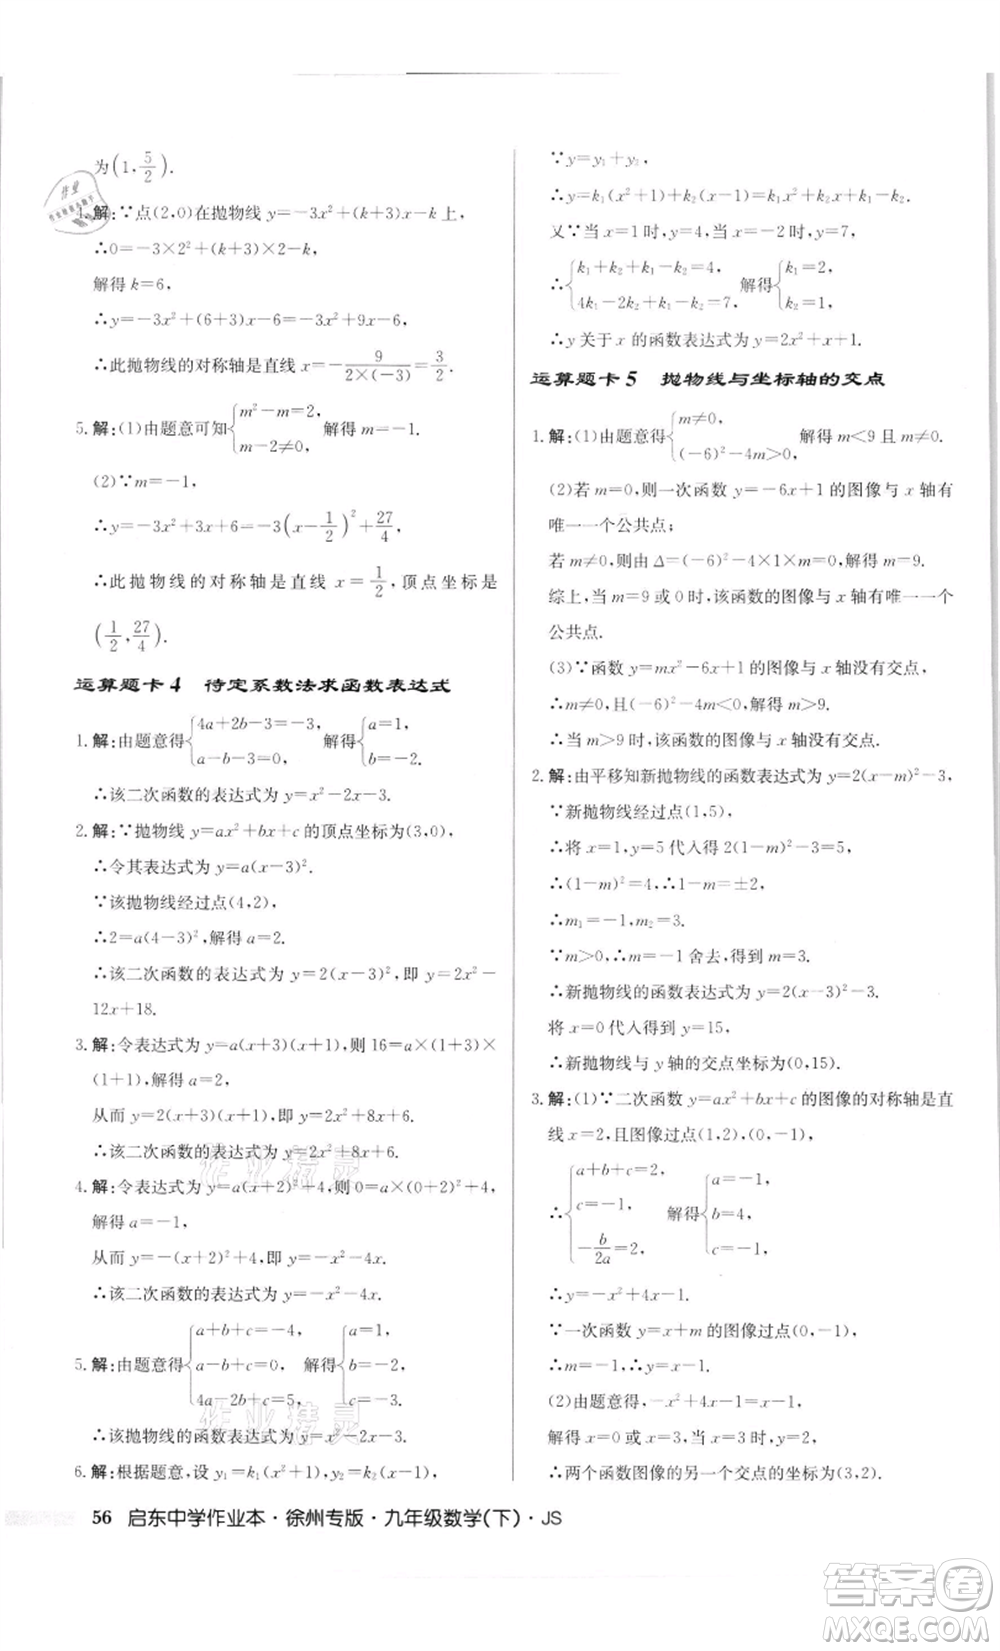 为(1,5/2).
4. 解:∵点(2,0)在抛物线 y=-3x²+(k+3)x-k上,
∴0=-3×2²+(k+3)×2-k,
解得 k=6,
∴y=-3x²+(6+3)x-6=-3x²+9x-6,
∴此抛物线的对称轴是直线 x=-9/(2×(-3))=3/2.
5. 解:(1)由题意可知{m²-m=2, m-2≠0, 解得 m=-1.
(2)∵m=-1,
∴y=-3x²+3x+6=-3(x-1/2)²+27/4,
∴此抛物线的对称轴是直线 x=1/2,顶点坐标是
(1/2,27/4).
运算题卡4 待定系数法求函数表达式
1. 解:由题意得{4a+2b-3=-3, a-b-3=0, 解得{a=1, b=-2.
∴该二次函数的表达式为 y=x²-2x-3.
2. 解:∵抛物线 y=ax²+bx+c 的顶点坐标为(3,0),
∴令其表达式为 y=a(x-3)².
∵该抛物线经过点(4,2),
∴2=a(4-3)²,解得 a=2.
∴该二次函数的表达式为 y=2(x-3)²,即 y=2x²-
12x+18.
3. 解:令表达式为 y=a(x+3)(x+1),则 16=a×(1+3)×
(1+1),解得 a=2,
从而 y=2(x+3)(x+1),即 y=2x²+8x+6.
∴该二次函数的表达式为 y=2x²+8x+6.
4. 解:令表达式为 y=a(x+2)²+4,则 0=a×(0+2)²+4,
解得 a=-1,
从而 y=-(x+2)²+4,即 y=-x²-4x.
∴该二次函数的表达式为 y=-x²-4x.
5. 解:由题意得{a+b+c=-4, a-b+c=0, 4a-2b+c=5, 解得{a=1, b=-2, c=-3.
∴该抛物线的函数表达式为 y=x²-2x-3.
6. 解:根据题意,设 y₁=k₁(x²+1),y₂=k₂(x-1),
∵y=y₁+y₂,
∴y=k₁(x²+1)+k₂(x-1)=k₁x²+k₂x+k₁-k₂.
又∵当 x=1 时,y=4,当 x=-2时,y=7,
∴{k₁+k₂+k₁-k₂=4, 4k₁-2k₂+k₁-k₂=7, 解得{k₁=2, k₂=1.
∴y 关于 x 的函数表达式为 y=2x²+x+1.
运算题卡5 抛物线与坐标轴的交点
1. 解:(1)由题意得{m≠0, (-6)²-4m>0, 解得 m<9 且 m≠0.
(2)若 m=0,则一次函数 y=-6x+1的图像与 x 轴有
唯一一个公共点;
若 m≠0,则由 Δ=(-6)²-4×1×m=0,解得 m=9.
综上,当 m=9或0时,该函数的图像与 x 轴有唯一一个
公共点.
(3)∵函数 y=mx²-6x+1的图像与 x 轴没有交点,
∴m≠0,Δ=(-6)²-4m<0,解得 m>9.
∴当 m>9 时,该函数的图像与 x 轴没有交点.
2. 解:由平移知新抛物线的函数表达式为 y=2(x-m)²-3,
∵新抛物线经过点(1,5),
∴将 x=1,y=5代入得 2(1-m)²-3=5,
∴(1-m)²=4,∴1-m=±2,
∴m₁=-1,m₂=3.
∵m>0,∴m=-1舍去,得到 m=3.
∴新抛物线的函数表达式为 y=2(x-3)²-3.
将 x=0代入得到 y=15,
∴新抛物线与 y 轴的交点坐标为(0,15).
3. 解:(1)∵二次函数 y=ax²+bx+c 的图像的对称轴是直
线 x=2,且图像过点(1,2),(0,-1),
∴{a+b+c=2, c=-1, -b/2a=2, 解得{a=-1, b=4, c=-1,
∴y=-x²+4x-1.
∵一次函数 y=x+m 的图像过点(0,-1),
∴m=-1,∴y=x-1.
(2)由题意得,-x²+4x-1=x-1,
解得 x=0或 x=3,当 x=3时,y=2,
∴两个函数图像的另一个交点的坐标为(3,2).
56 启东中学作业本·徐州专版·九年级数学(下)·JS
作业精灵
作业精灵
答案卷
MXQE.COM